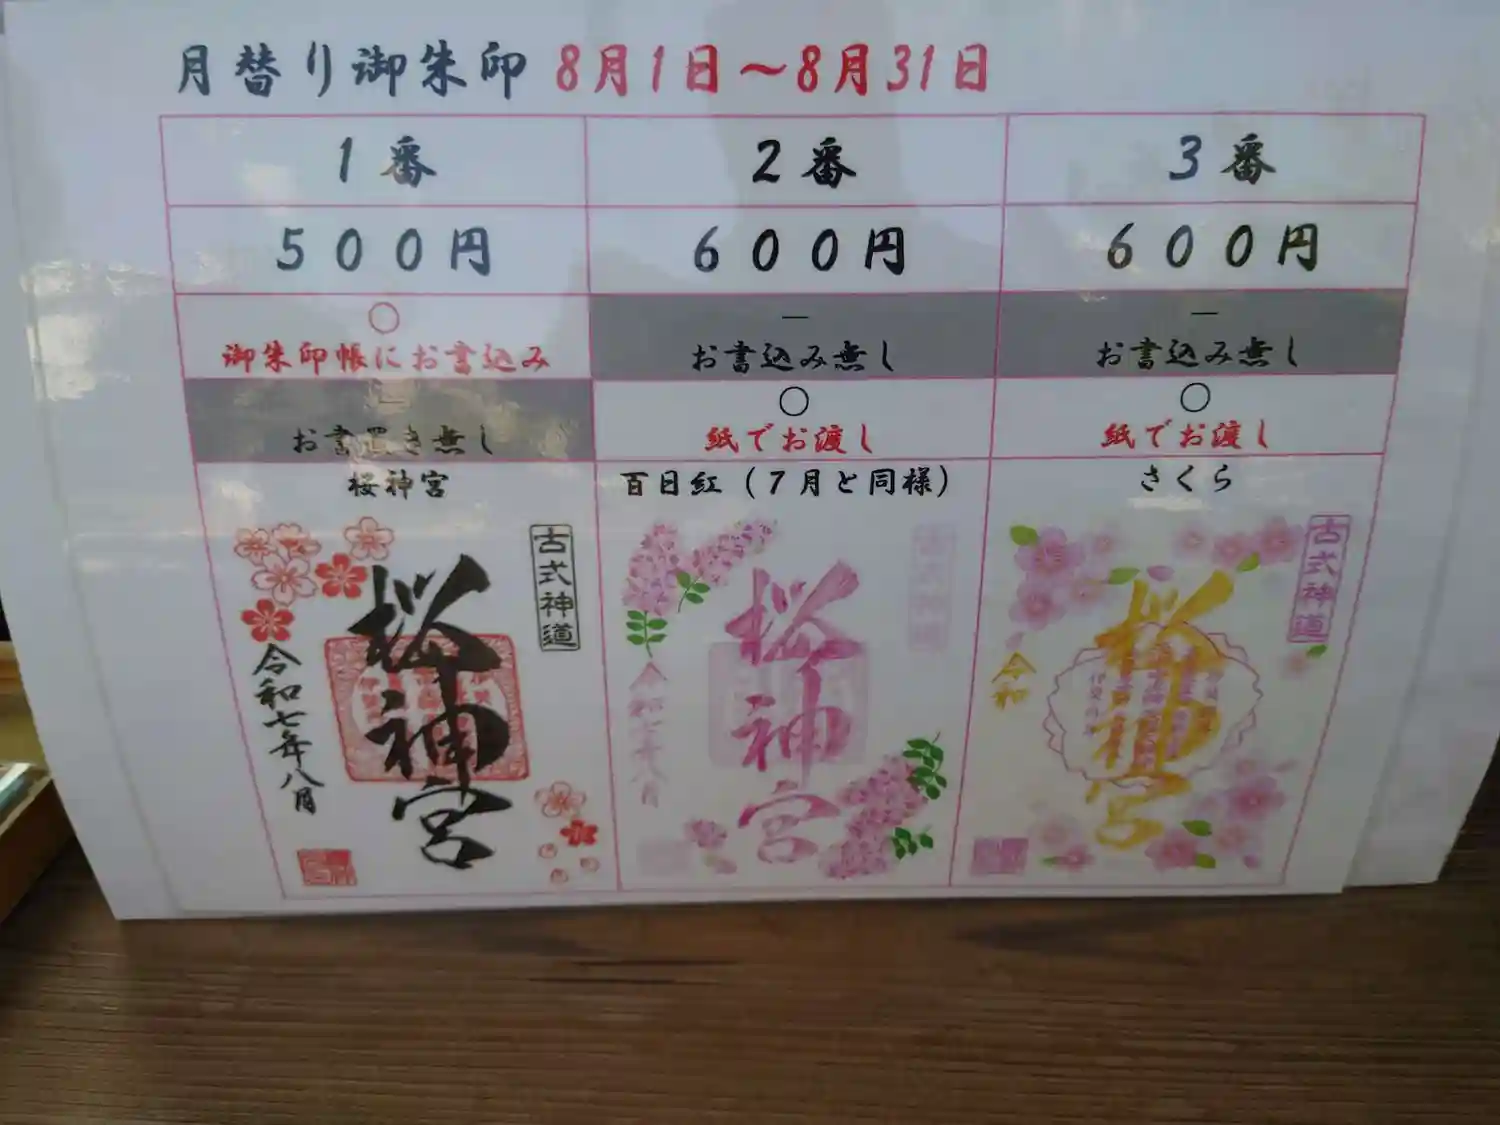 月替り御朱印 8月1日～8月31日
1番
2番
3番
500円
600円
600円
○
御朱印帳にお書込み
—
お書込み無し
—
お書込み無し
—
お書置き無し
○
紙でお渡し
○
紙でお渡し
桜神宮
百日紅（7月と同様）
さくら
古式神道
桜神宮
令和七年八月
古式神道
桜神宮
令和七年八月
古式神道
桜神宮
令和